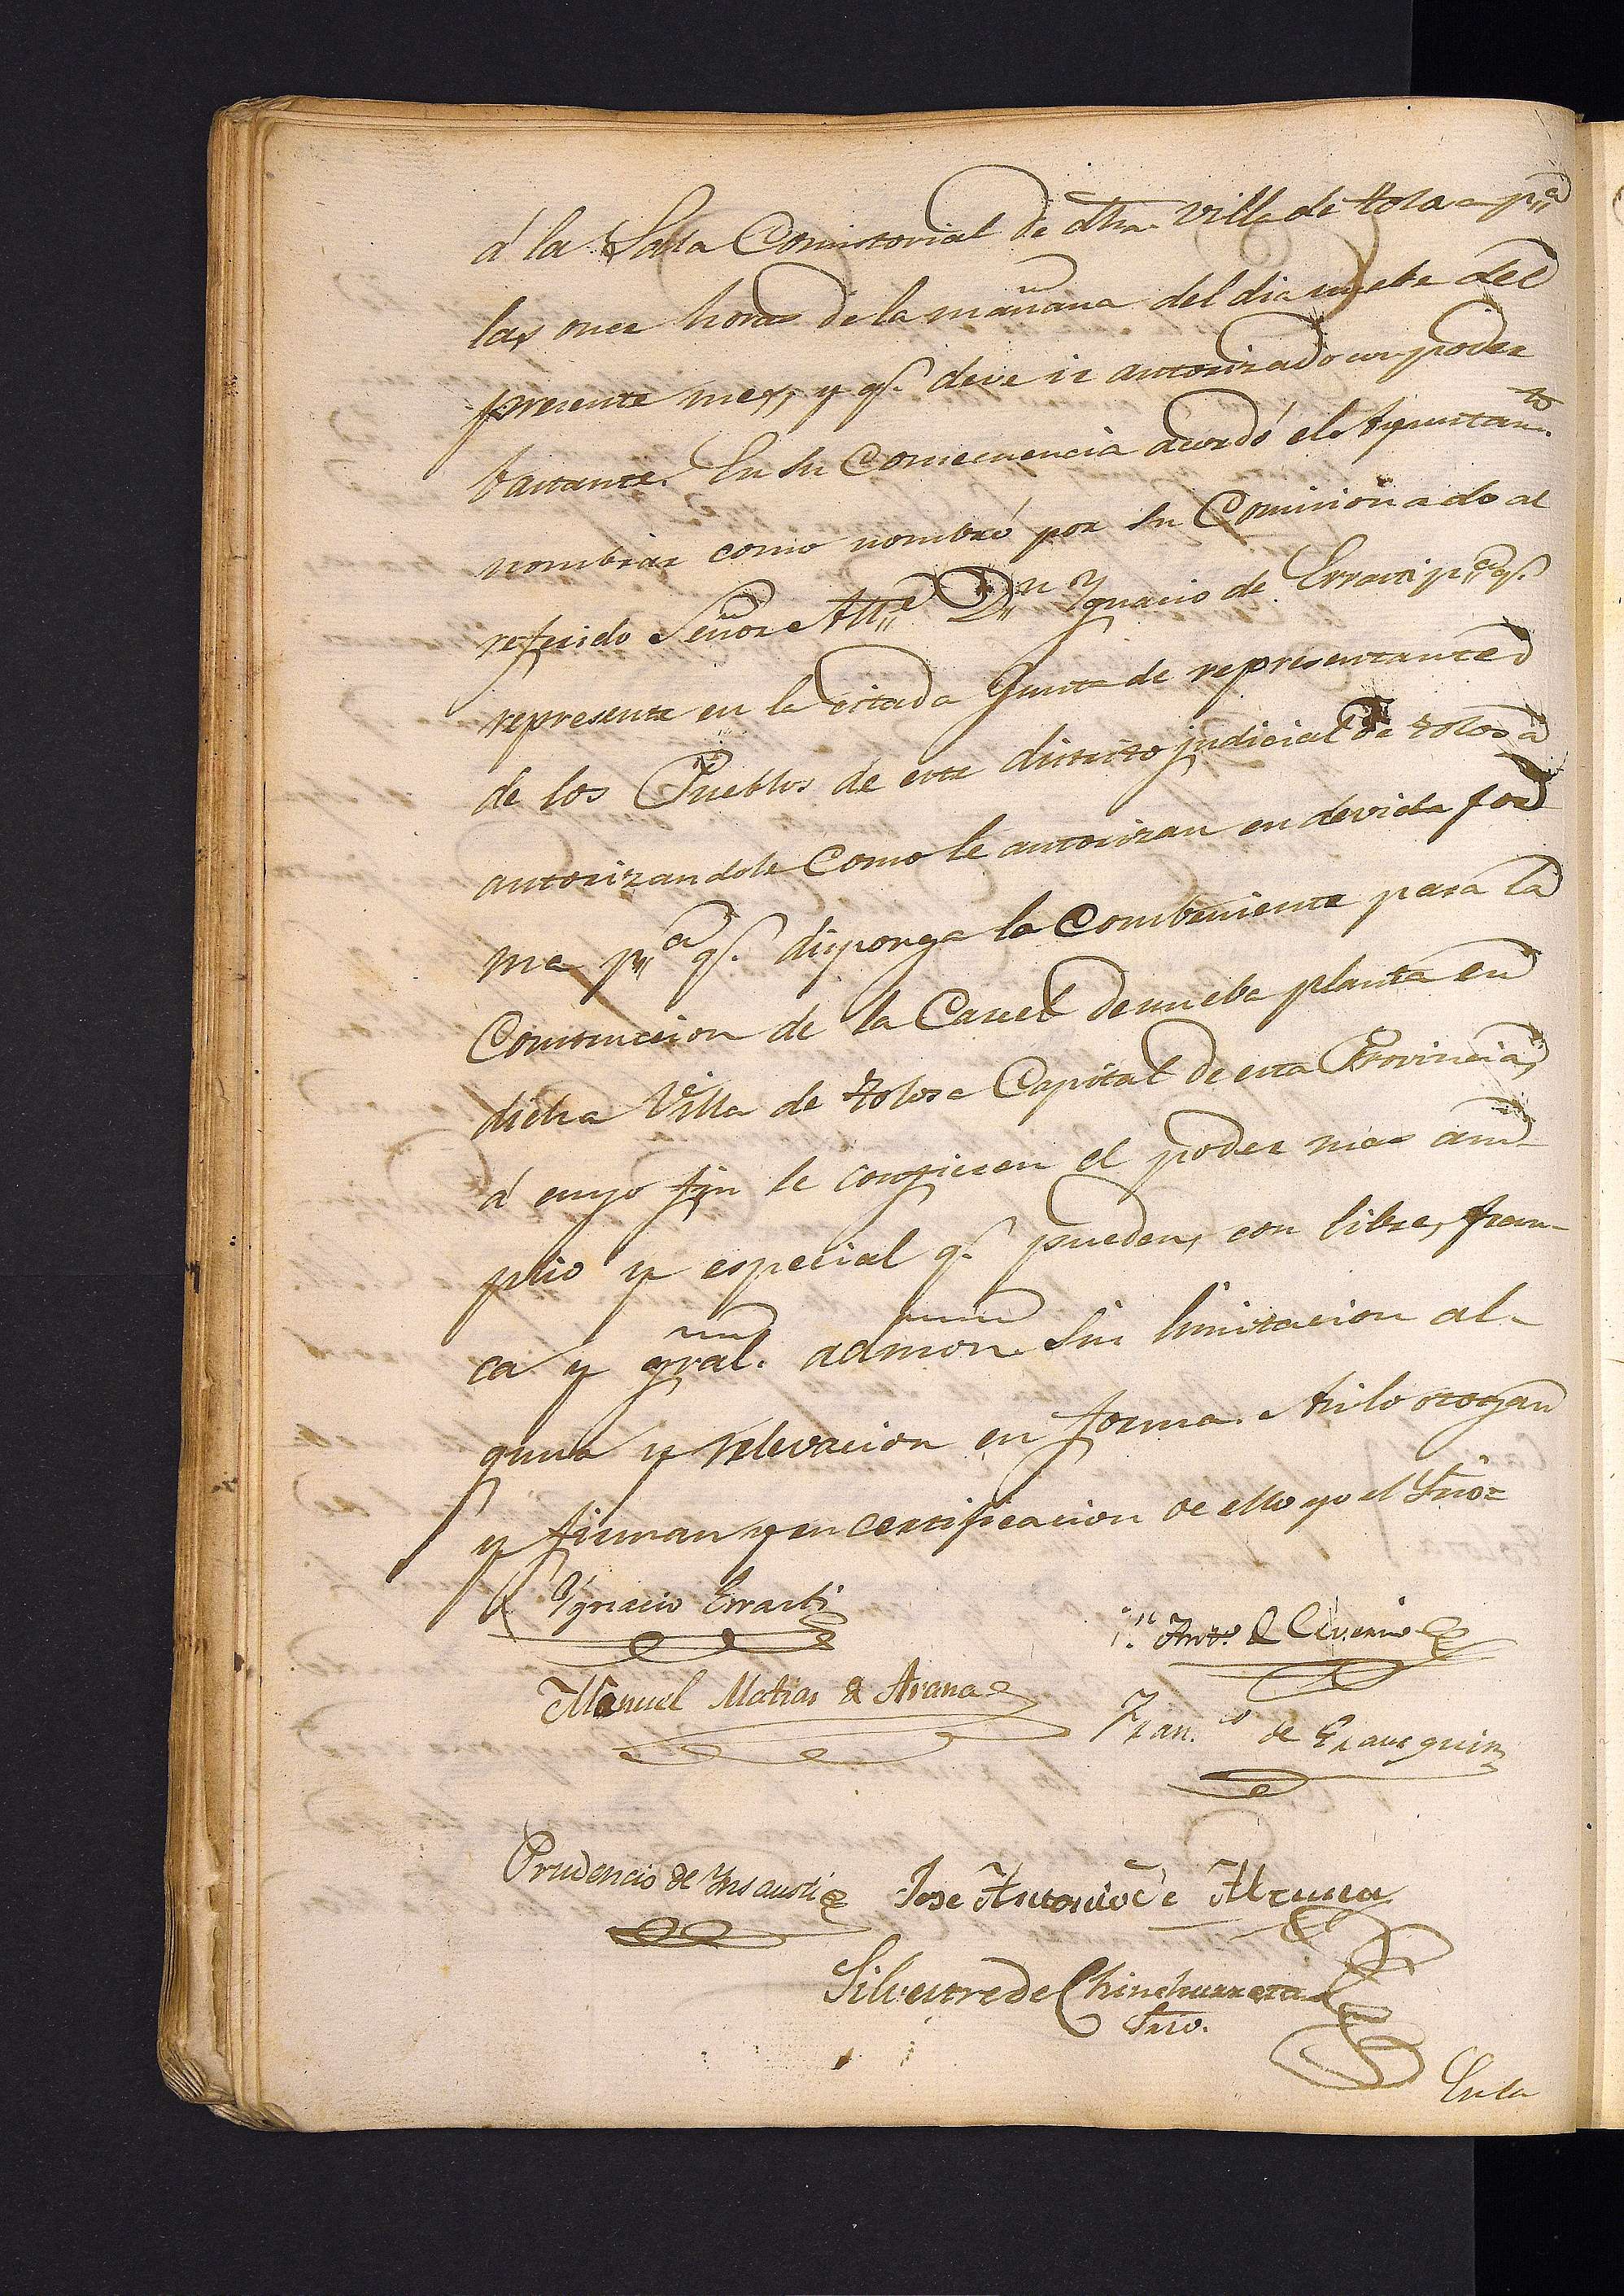 á la Sala Consistorial de dha. Villa de tolosa pª
las once horas de la mañana del dia nuebe del
presente mes, y qe. deve ir autorizado con poder
bastante. En su Consecuencia acordó el Ayuntamto.
nombrar como nombró por su Comisionado al
referido Señor Alle. Dn. Ygnacio de Errasti pª qe.
represente en la citada Junta de representantes
de los Pueblos de este distrito judicial de tolosa
autorizandole Como le autorizan en devida for
ma pª qe. disponga lo Combeniente para la
Construccion de la Carcel de nueba planta en
dicha Villa de tolosa Capital de esta Provincia,
á cuyo fin le confieren el poder mas am
plio y especial qe. pueden, con libre, fran-
ca y gral. admon. sin limitacion al-
guna y relevacion en forma. Asi lo otorgan
y firman y en certificacion de ello yo el Srio=
Ygnacio Errasti
Anto. de
Manuel Matias de Arana
Franco. de Erausquin
Prudencio de Ynsausti
Jose Antonio de
Silvestre de Chinchurreta
Srio.
En la